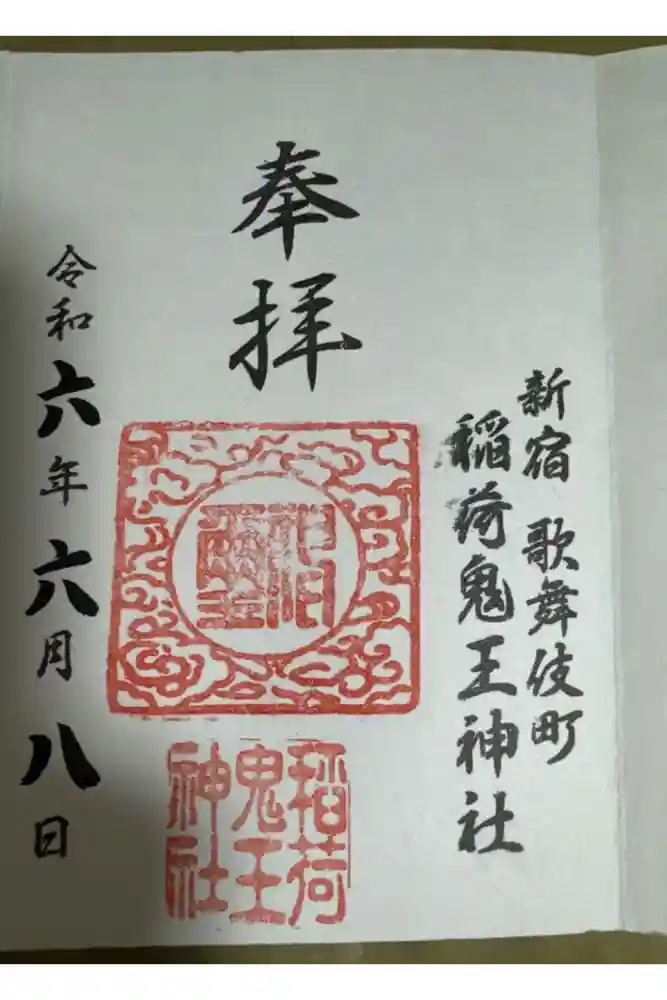 新宿 歌舞伎町
稲荷鬼王神社
奉拝
稲荷
鬼王
神社
令和六年六月八日